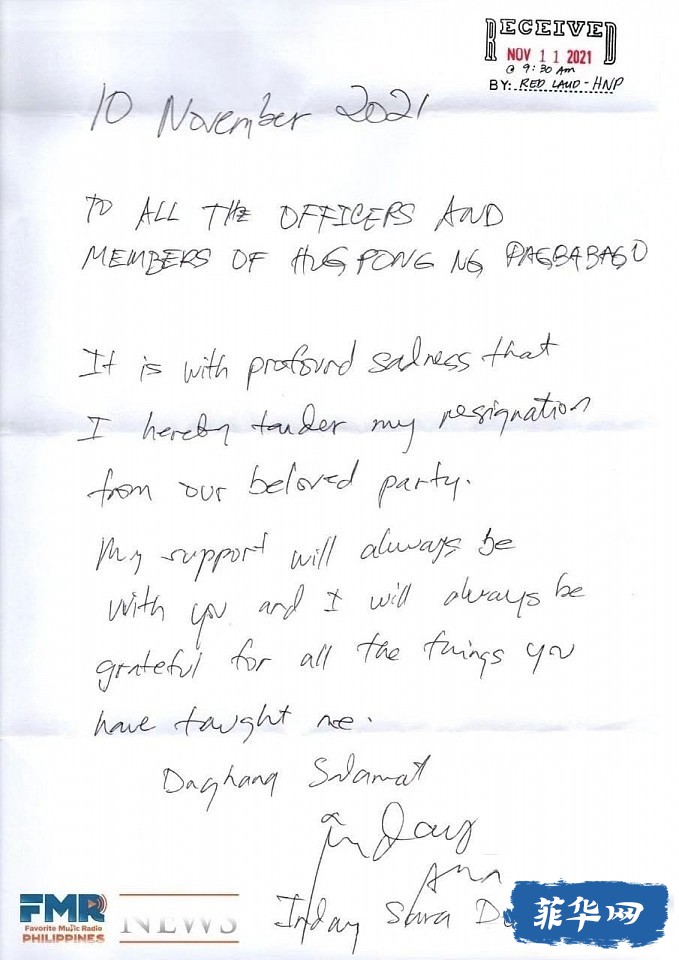 RECEIVED
NOV 11 2021
@ 9:30 AM
BY: RED LAUD - HNP
10 November 2021
TO ALL THE OFFICERS AND
MEMBERS OF HUGPONG NG PAGBABAGO
It is with profound sadness that
I hereby tender my resignation
from our beloved party.
My support will always be
with you and I will always be
grateful for all the things you
have taught me.
Daghang Salamat
Inday Sara D
FMR
Favorite Music Radio
PHILIPPINES
NEWS
菲华网